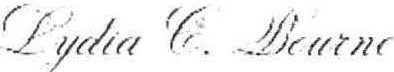 Lydia C. Bourne